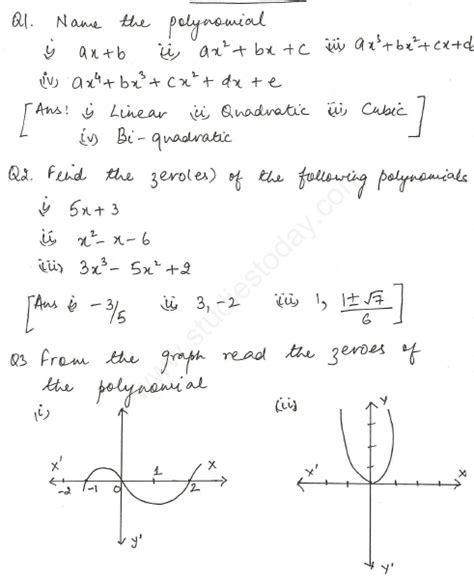 Q1. Name the polynomial
i) ax+b ii) ax² + bx + c iii) ax³+bx²+cx+d
iv) ax⁴+bx³+cx²+dx+e
[Ans: i) Linear ii) Quadratic iii) Cubic
iv) Bi-quadratic]
Q2. Find the zero(es) of the following polynomials
i) 5x+3
ii) x²-x-6
iii) 3x³-5x²+2
[Ans i) -3/5 ii) 3, -2 iii) 1, (1±√7)/6]
Q3 From the graph read the zeroes of
the polynomial
(i) (ii)
Y
X' 1 X X' X
-2 -1 0 2
Y' Y'
www.studiestoday.com